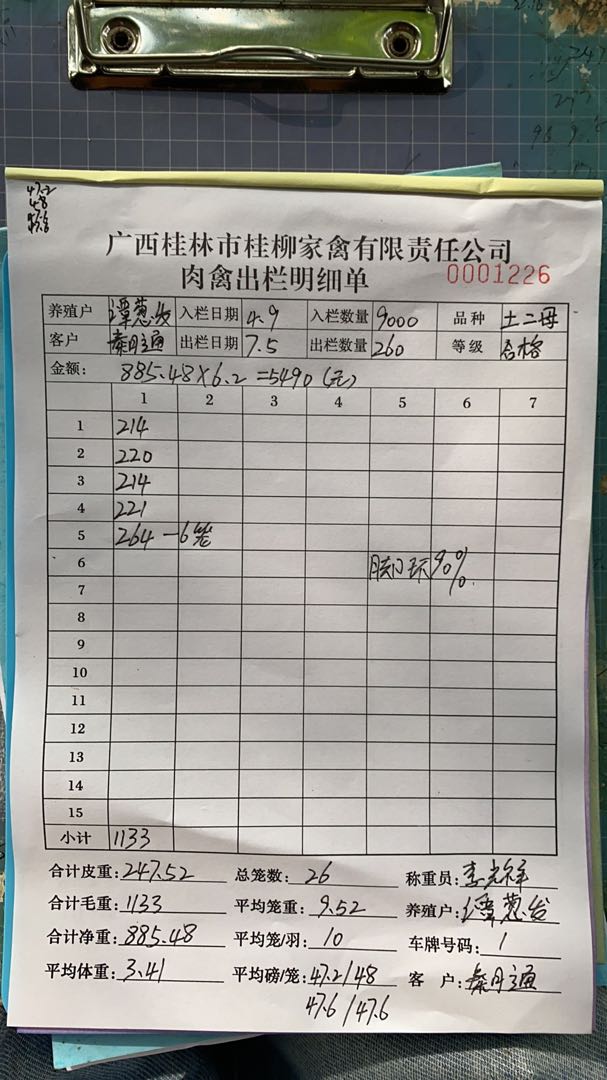 47.2
48
广西桂林市桂柳家禽有限责任公司
肉禽出栏明细单 0001226
养殖户 谭葱发 入栏日期 4.9 入栏数量 9000 品种 土二母
客户 秦月通 出栏日期 7.5 出栏数量 260 等级 合格
金额: 885.48×6.2=5490(元)
1 2 3 4 5 6 7
1 214
2 220
3 214
4 221
5 264 一6笼
6 90%
7
8
9
10
11
12
13
14
15
小计 1133
合计皮重:247.52 总笼数:26 称重员:李光祥
合计毛重:1133 平均笼重:9.52 养殖户:谭葱发
合计净重:885.48 平均笼/羽:10 车牌号码:1
平均体重:3.41 平均磅/笼:47.2/48 客户:秦月通
47.6/47.6